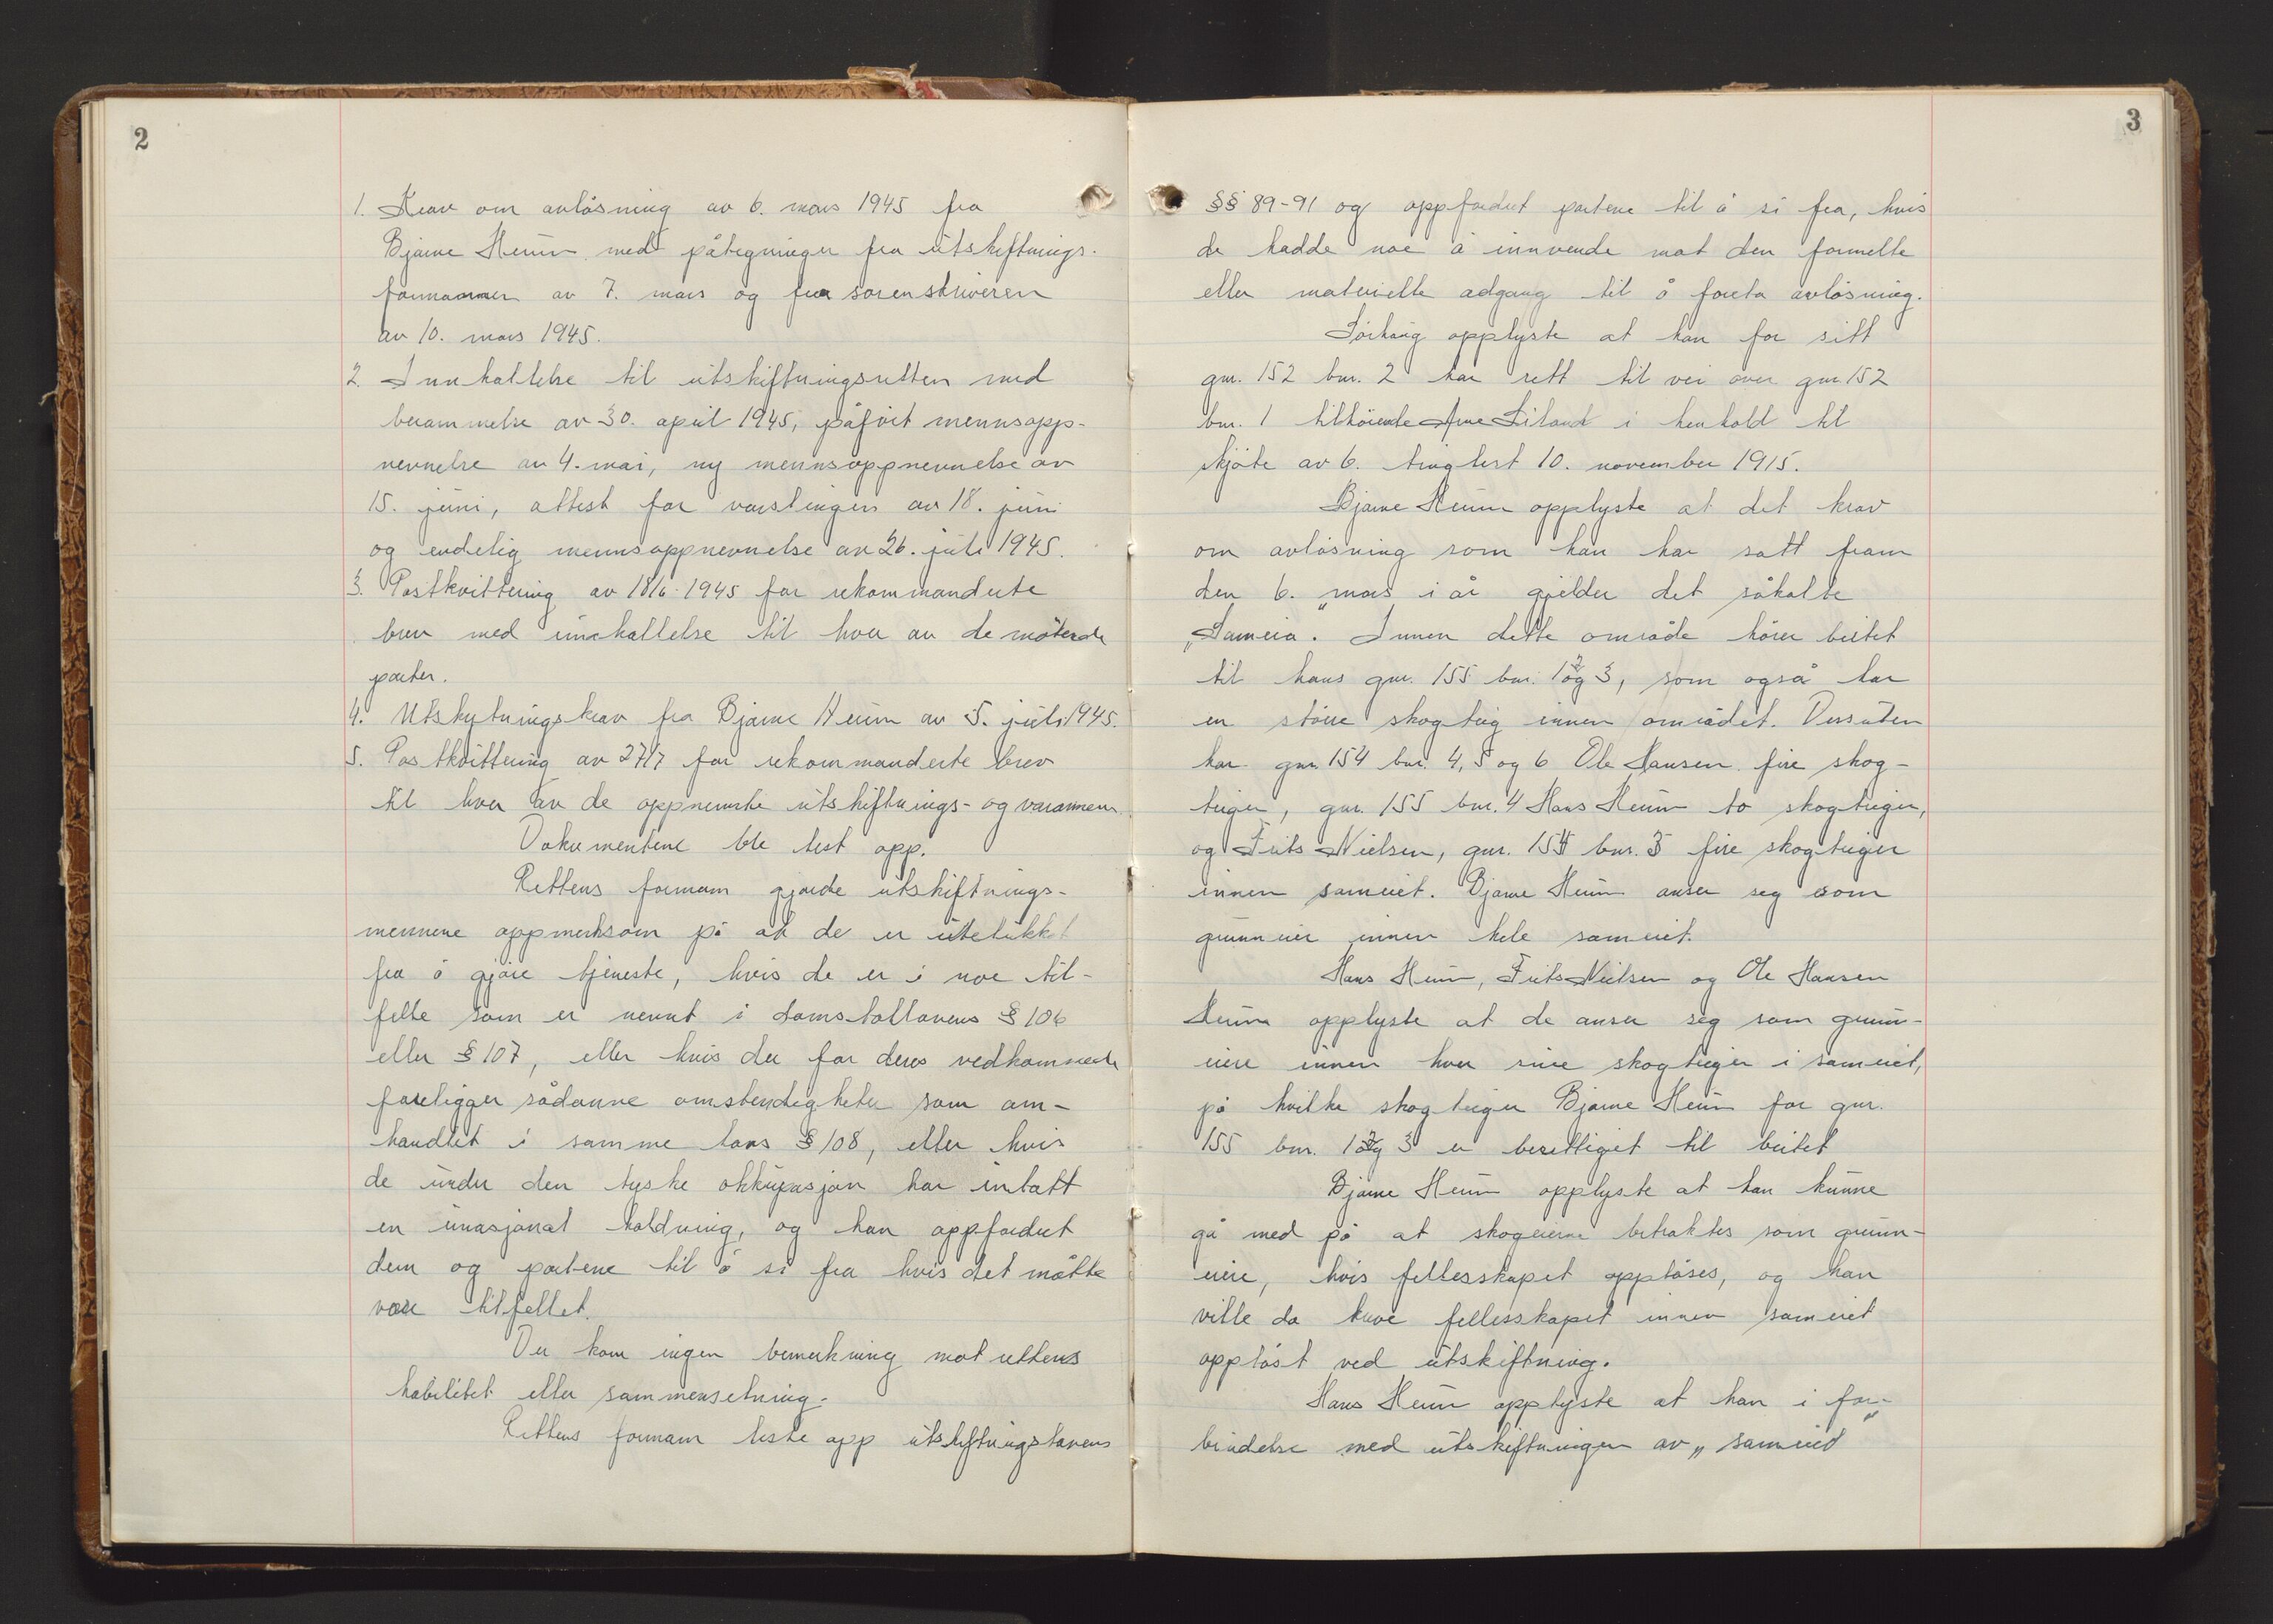 2
1. Krav om avlösning av 6. mars 1945 fra
Bjarne Heum med påtegninger fra utskiftnings-
formannen av 7. mars og fra sorenskriveren
av 10. mars 1945.
2. Innkallelse til utskiftningsretten med
berammelse av 30. april 1945, påfört mennsopp-
nevnelse av 4. mai, ny mennsoppnevnelse av
15. juni, attest for varslingen av 18. juni
og endelig mennsoppnevnelse av 26. juli 1945.
3. Postkvittering av 18/6 1945 for rekommanderte
brev med innkallelse til hver av de möterde
parter.
4. Utskytningskrav fra Bjarne Heum av 5. juli 1945.
5. Postkvittering av 27/7 for rekommanderte brev
til hver av de oppnevnte utskiftnings- og varamenn.
Dokumentene ble lest opp.
Rettens formann gjorde utskiftnings-
mennene oppmerksom på at de er utelukket
fra å gjöre tjeneste, hvis de er i noe til-
felle som er nevnt i domstollovens § 106
eller § 107, eller hvis der for deres vedkommende
foreligger sådanne omstendigheter som om-
handlet i samme lovs § 108, eller hvis
de under den tyske okkupasjon har inntatt
en unasjonal holdning, og han oppfordret
dem og partene til å si fra hvis det måtte
være tilfellet.
Der kom ingen bemerkning mot rettens
habilitet eller sammensetning.
Rettens formann leste opp utskiftningslovens
3
§§ 89-91 og oppfordret partene til å si fra, hvis
de hadde noe å innvende mot den formelle
eller materielle adgang til å foreta avlösning.
opplyste at han for sitt
gnr. 152 bnr. 2 har rett til vei over gnr. 152
bnr. 1 tilhörende Arne Liland i henhold til
skjöte av 6. tinglest 10. november 1915.
Bjarne Heum opplyste at det krav
om avlösning som han har satt fram
den 6. mars i år gjelder det såkalte
„Sameia". Innen dette område hörer beitet
til hans gnr. 155 bnr. 1, 2 og 3, som også har
en större skogteig innen området. Dessuten
har gnr. 154 bnr. 4, 5 og 6 Ole Hansen fire skog-
teiger, gnr. 155 bnr. 4 Hans Heum to skogteiger,
og Frits Nielsen, gnr. 154 bnr. 3 fire skogteiger
innen sameiet. Bjarne Heum anser seg som
grunneier innen hele sameiet.
Hans Heum, Frits Nielsen og Ole Hansen
Heum opplyste at de anser seg som grunn-
eiere innen hver sine skogteiger i sameiet,
på hvilke skogteiger Bjarne Heum for gnr.
155 bnr. 1, 2 og 3 er berettiget til beitet
Bjarne Heum opplyste at han kunne
gå med på at skogeierne betraktes som grunn-
eiere, hvis fellesskapet opplöses, og han
ville da kreve fellesskapet innen sameiet
opplöst ved utskiftning.
Hans Heum opplyste at han i for-
bindelse med utskiftningen av „sameiet"